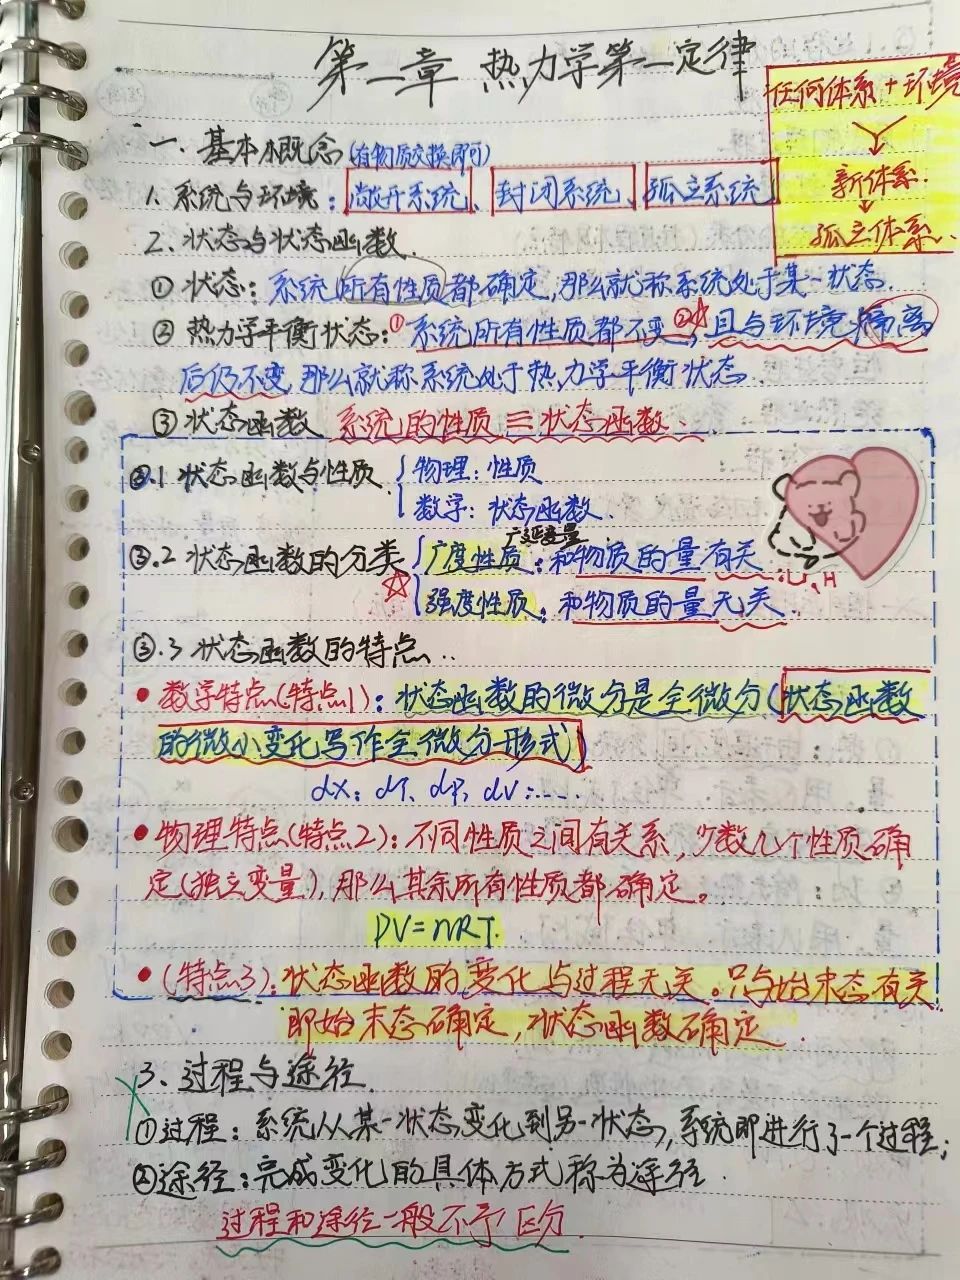 第二章 热力学第一定律
任何体系+环境
新体系
孤立体系
一、基本概念(有物质交换即可)
1.系统与环境:敞开系统、封闭系统、孤立系统
2.状态与状态函数
①状态:系统所有性质都确定,那么就称系统处于某一状态.
②热力学平衡状态:①系统所有性质都不变,②且与环境隔离
后仍不变,那么就称系统处于热力学平衡状态.
③状态函数 系统的性质≡状态函数.
③.1状态函数与性质{物理:性质
数学:状态函数.
广延变量
③.2状态函数的分类{广度性质:和物质的量有关:U,H
强度性质:和物质的量无关.
③.3状态函数的特点..
•数学特点(特点1):状态函数的微分是全微分(状态函数
的微小变化写作全微分形式)
dX:dT、dP、dV:....
•物理特点(特点2):不同性质之间有关系,少数几个性质确
定(独立变量),那么其余所有性质都确定。
PV=nRT.
•(特点3):状态函数的变化与过程无关。只与始末态有关
即始末态确定,状态函数确定.
3.过程与途径.
①过程:系统从某一状态变化到另一状态,系统即进行了一个过程;
②途径:完成变化的具体方式称为途径.
过程和途径一般不予区分.